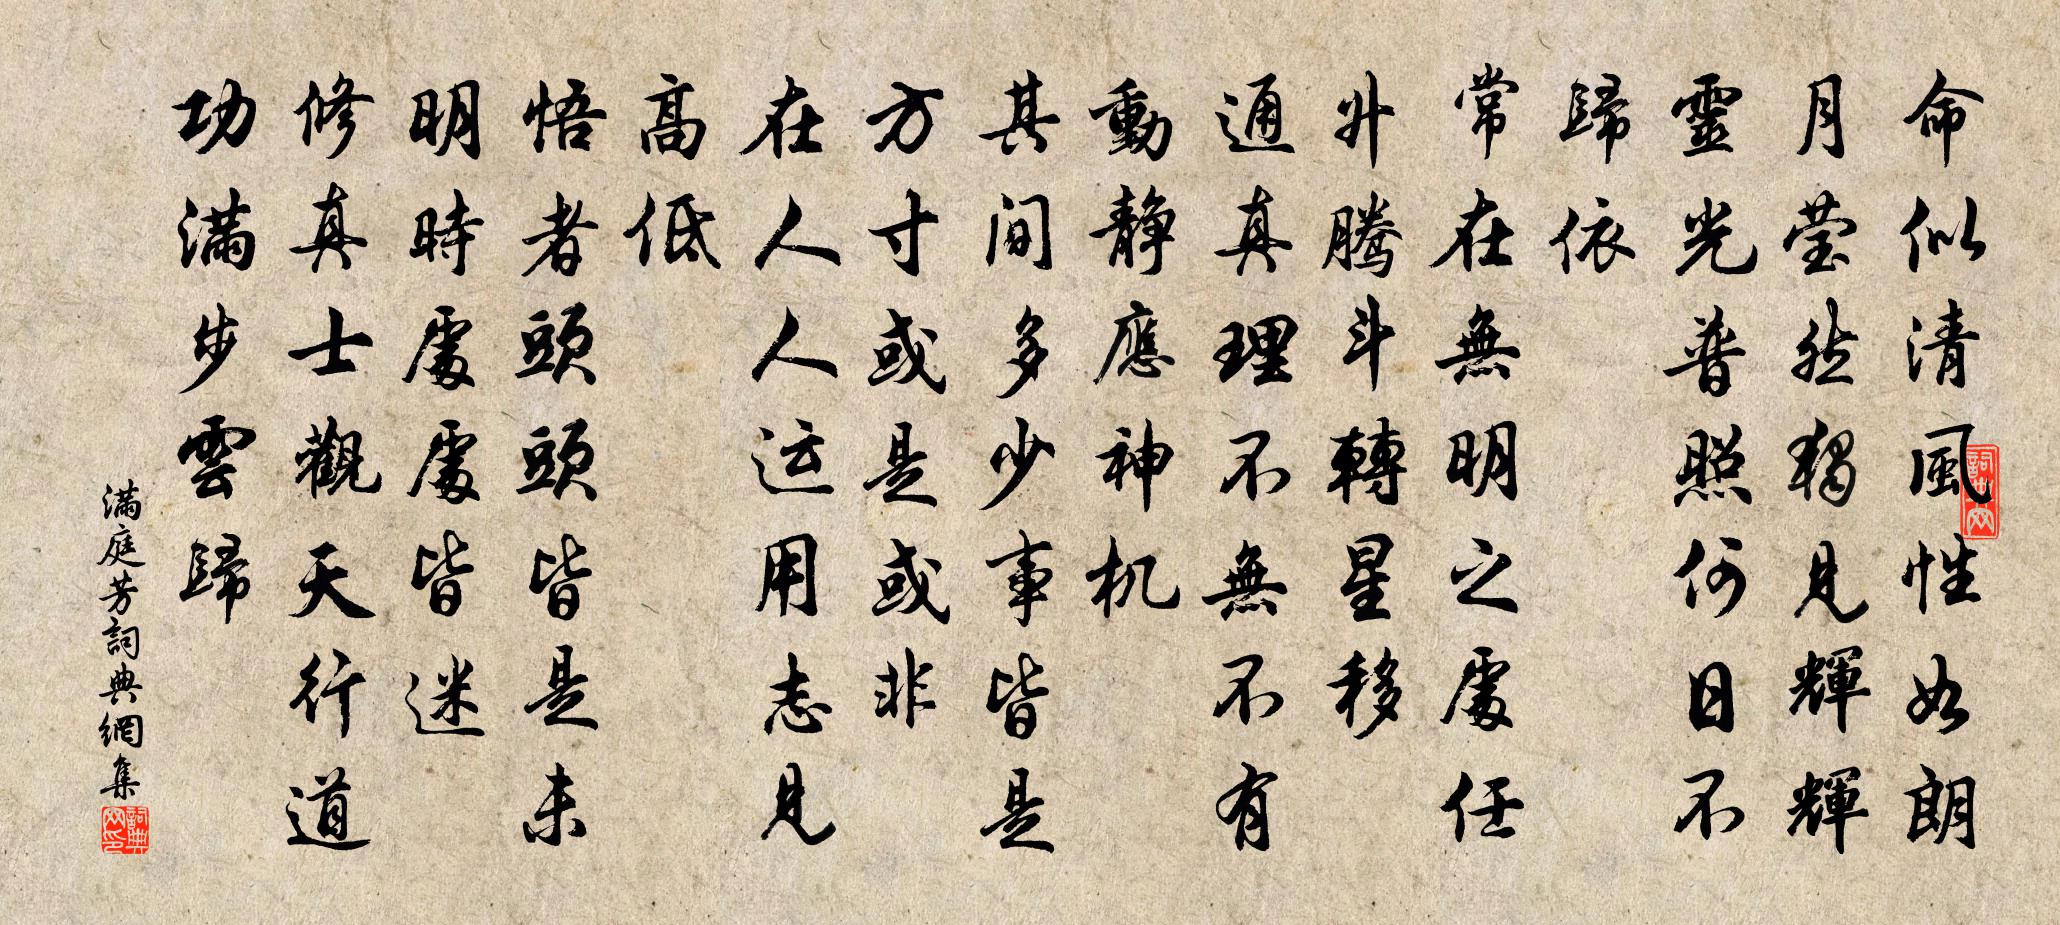 命似清風性如朗
月莹然獨見輝輝
靈光普照何日不
歸依
常在無明之處任
升騰斗轉星移
通真理不無不有
動靜應神机
其间多少事皆是
方寸或是或非
在人人运用志見
高低
悟者頭頭皆是未
明時處處皆迷
修真士觀天行道
功滿步雲歸
滿庭芳詞典網集
詞典网
詞典网印